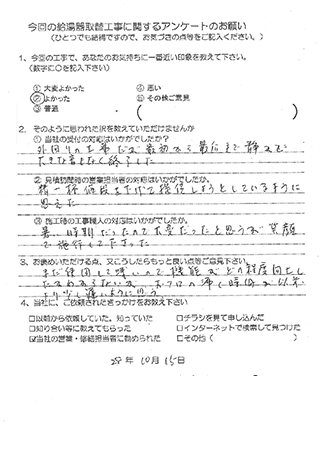 今回の給湯器取替工事に関するアンケートのお願い
(ひとつでも結構ですので、お気づきの点等をご記入ください。)
1、今回の工事で、あなたのお気持ちに一番近い印象を教えて下さい。
(数字に○を記入下さい)
①大変よかった ④悪い
②よかった ⑤その他ご意見
③普通 ( )
2、そのように思われた訳を教えていただけませんか
①当社の受付の対応はいかがでしたか。
外回りの工事で 最初から最後まで静かで
終了した
②見積訪問時の営業担当者の対応はいかがでしたか。
精一杯値段を下げて提供しようとしているように
思えた
③施工時の工事職人の対応はいかがでしたか。
暑い時期だったので大変だったと思うが笑顔
で施行して下さった
3、お褒めいただける点、又こうしたらもっと良い点等ご意見下さい。
まだ使用して浅いので機能がどの程度向上し
たかわからないが、おフロの沸く時間が以前
より少し遅いように思う
4、当社に、ご依頼されたきっかけをお教え下さい
□以前から依頼していた。知っていた □チラシを見て申し込んだ
□知り合い等に教えてもらった □インターネットで検索して見つけた
☑当社の営業・修繕担当者に勧められた □その他( )
28年 10月 15日